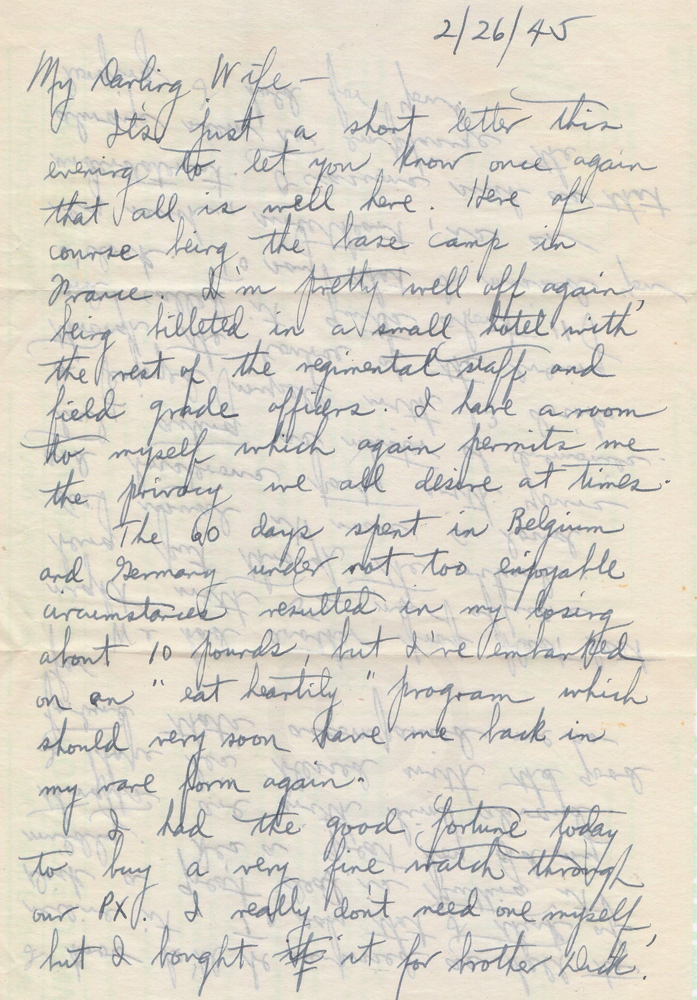 2/26/45
My Darling Wife —
It's just a short letter this
evening to let you know once again
that all is well here. Here of
course being the base camp in
France. I'm pretty well off again,
being billeted in a small hotel with
the rest of the regimental staff and
field grade officers. I have a room
to myself which again permits me
the privacy we all desire at times.
The 60 days spent in Belgium
and Germany under not too enjoyable
circumstances resulted in my losing
about 10 pounds, but I've embarked
on an "eat heartily" program which
should very soon have me back in
my rare form again.
I had the good fortune today
to buy a very fine watch through
our PX. I really don't need one myself,
but I bought it for brother Dick.